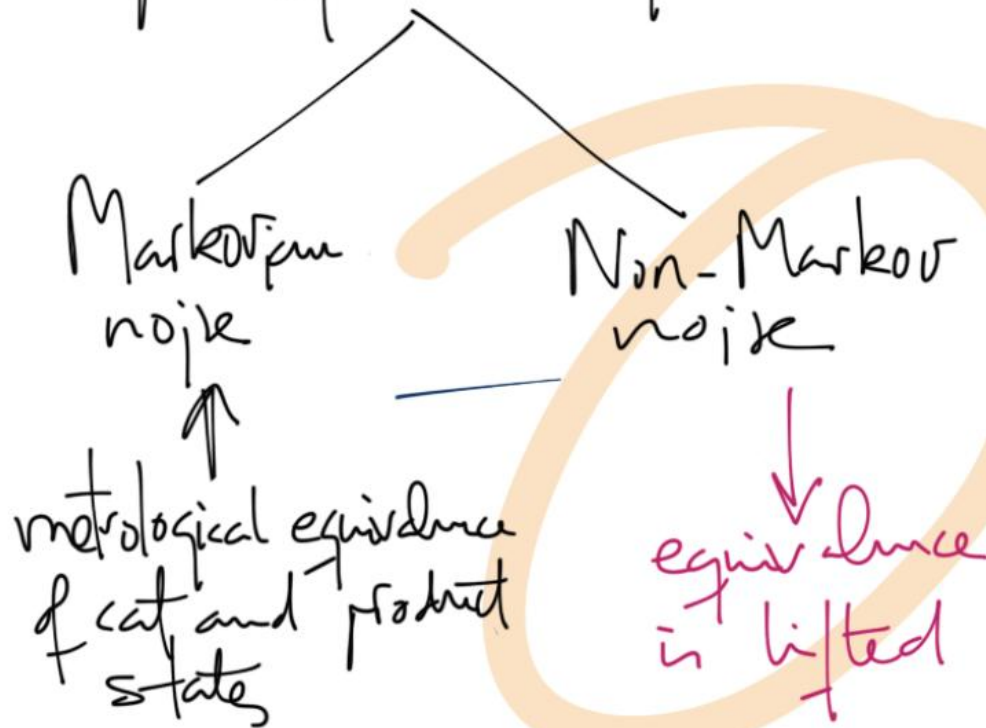 Markovian
noise
Non-Markov
noise
metrological equivalence
of cat and product
states
equivalence
is lifted